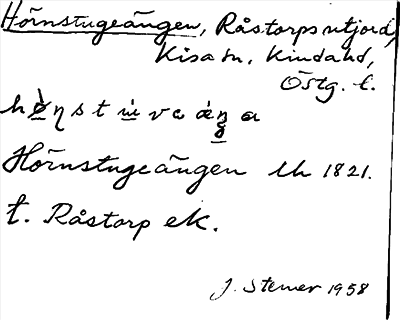 Hörnstugeängen, Råstorps utjord,
Kisa sn, Kinda hd,
Östg. l.
Hörnstugeängen Lh 1821.
t. Råstorp ek.
J. Sterner 1958